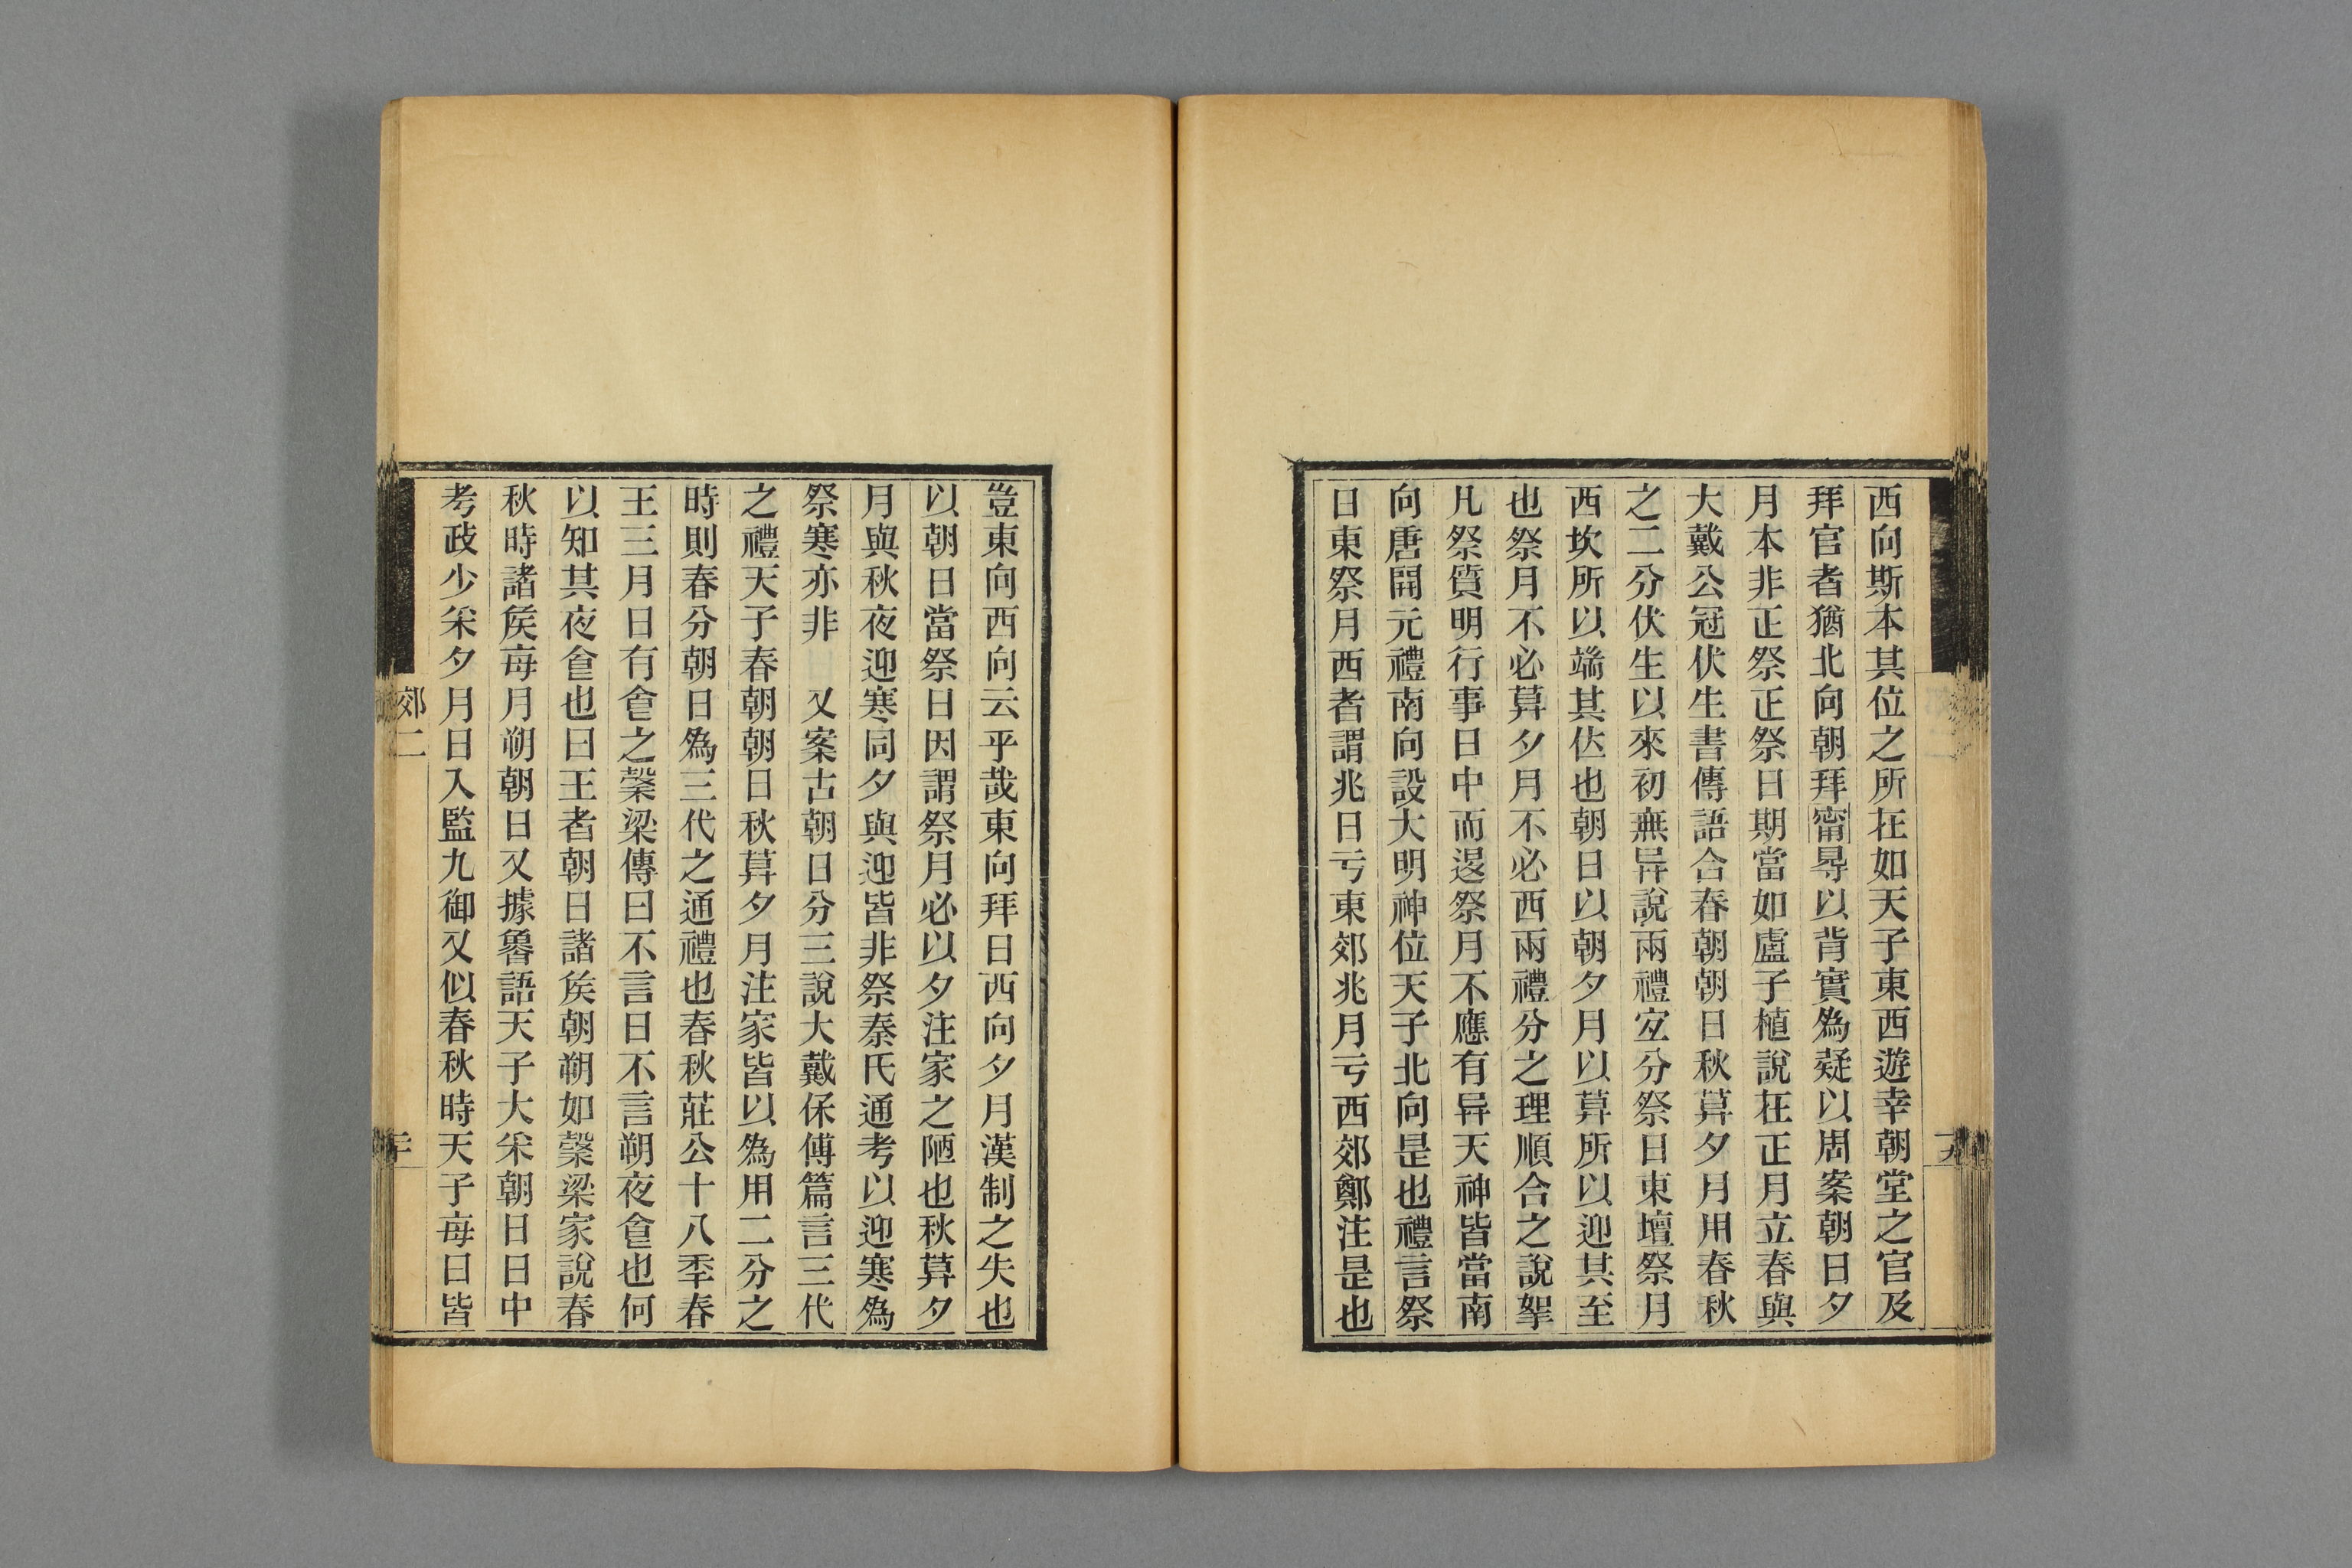 西向斯本其位之所在如天子東西遊幸朝堂之官及
拜官者猶北向朝拜甯㝵以背實爲疑以周案朝日夕
月本非正祭正祭日期當如盧子植說在正月立春與
大戴公冠伏生書傳語合春朝朝日秋萛夕月用春秋
之二分伏生以來初無异說兩禮宐分祭日東壇祭月
西坎所以端其位也朝日以朝夕月以萛所以迎其至
也祭月不必萛夕月不必西兩禮分之理順合之說挐
凡祭質明行事日中而退祭月不應有异天神皆當南
向唐開元禮南向設大明神位天子北向是也禮言祭
日東祭月西者謂兆日亏東郊兆月亏西郊鄭注是也
豈東向西向云乎哉東向拜日西向夕月漢制之失也
以朝日當祭日因謂祭月必以夕注家之陋也秋萛夕
月與秋夜迎寒同夕與迎皆非祭秦氏通考以迎寒爲
祭寒亦非　又案古朝日分三說大戴保傅篇言三代
之禮天子春朝朝日秋萛夕月注家皆以爲用二分之
時則春分朝日爲三代之通禮也春秋莊公十八秊春
王三月日有食之榖梁傳曰不言日不言朔夜食也何
以知其夜食也曰王者朝日諸矦朝朔如榖梁家說春
秋時諸矦每月朔朝日又據魯語天子大采朝日日中
考政少采夕月日入監九御又似春秋時天子每日皆
郊二
二十
十九